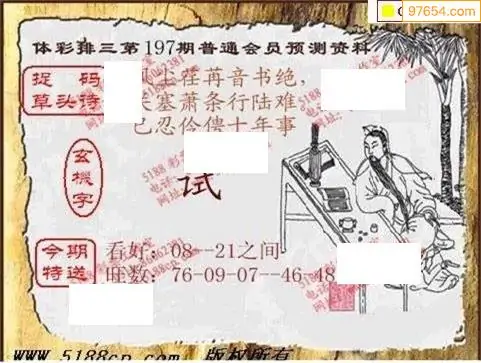 97654.com
体彩排三第197期普通会员预测资料
捉 码
草头诗
荏苒音书绝,
塞萧条行陆难
忍伶 十年事
玄機字
试
今期
特送
看好：08--21之间
旺数：76-09-07--46-48
www.5188cp.com 版权所有